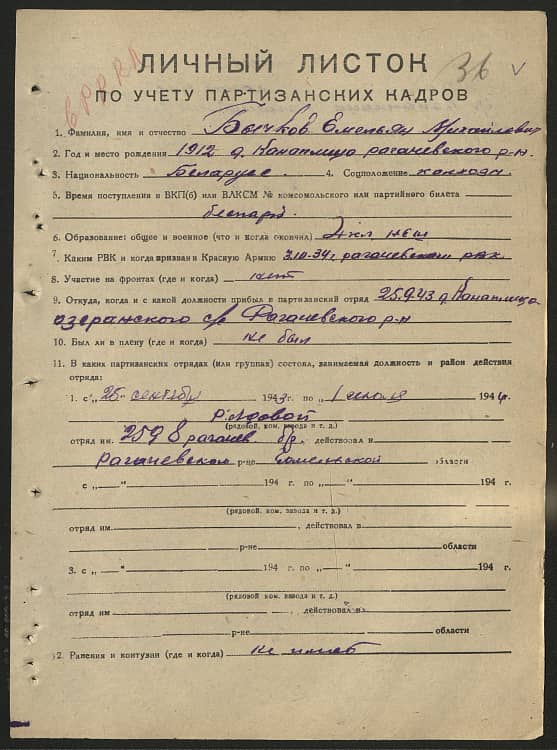 36
ЛИЧНЫЙ ЛИСТОК
ПО УЧЕТУ ПАРТИЗАНСКИХ КАДРОВ
1. Фамилия, имя и отчество Бычков Емельян Михайлович
2. Год и место рождения 1912 д. Канаплица рагачевского р-н
3. Национальность Беларусс 4. Соцположение
5. Время поступления в ВКП(б) или ВЛКСМ № комсомольского или партийного билета
беспарт.
6. Образование: общее и военное (что и когда окончил)
7. Каким РВК и когда призван в Красную Армию рагачевским рвк.
8. Участие на фронтах (где и когда) нет
9. Откуда, когда и с какой должности прибыл в партизанский отряд 25.9.43 д. Канаплица
озеранского с/с Рагачевского р-н
10. Был ли в плену (где и когда) не был
11. В каких партизанских отрядах (или группах) состоял, занимаемая должность и район действия
отряда:
1. с „25“ сентября 1943 г. по „1 июля 1944
Рядовой
(рядовой, ком. взвода и т. д.)
отряд им. 259 8 рагачев. бр. действовал в
Рагачевском р-не Гомельской области
с „—“ 194 г. по „—“ 194 г.
(рядовой, ком. взвода и т. д.)
отряд им. , действовал в
р-не области
3. с „—“ 194 г. по „—“ 194 г.
(рядовой, ком. взвода и т. д.)
отряд им действовал в
р-не области
2. Ранения и контузии (где и когда) не имеет